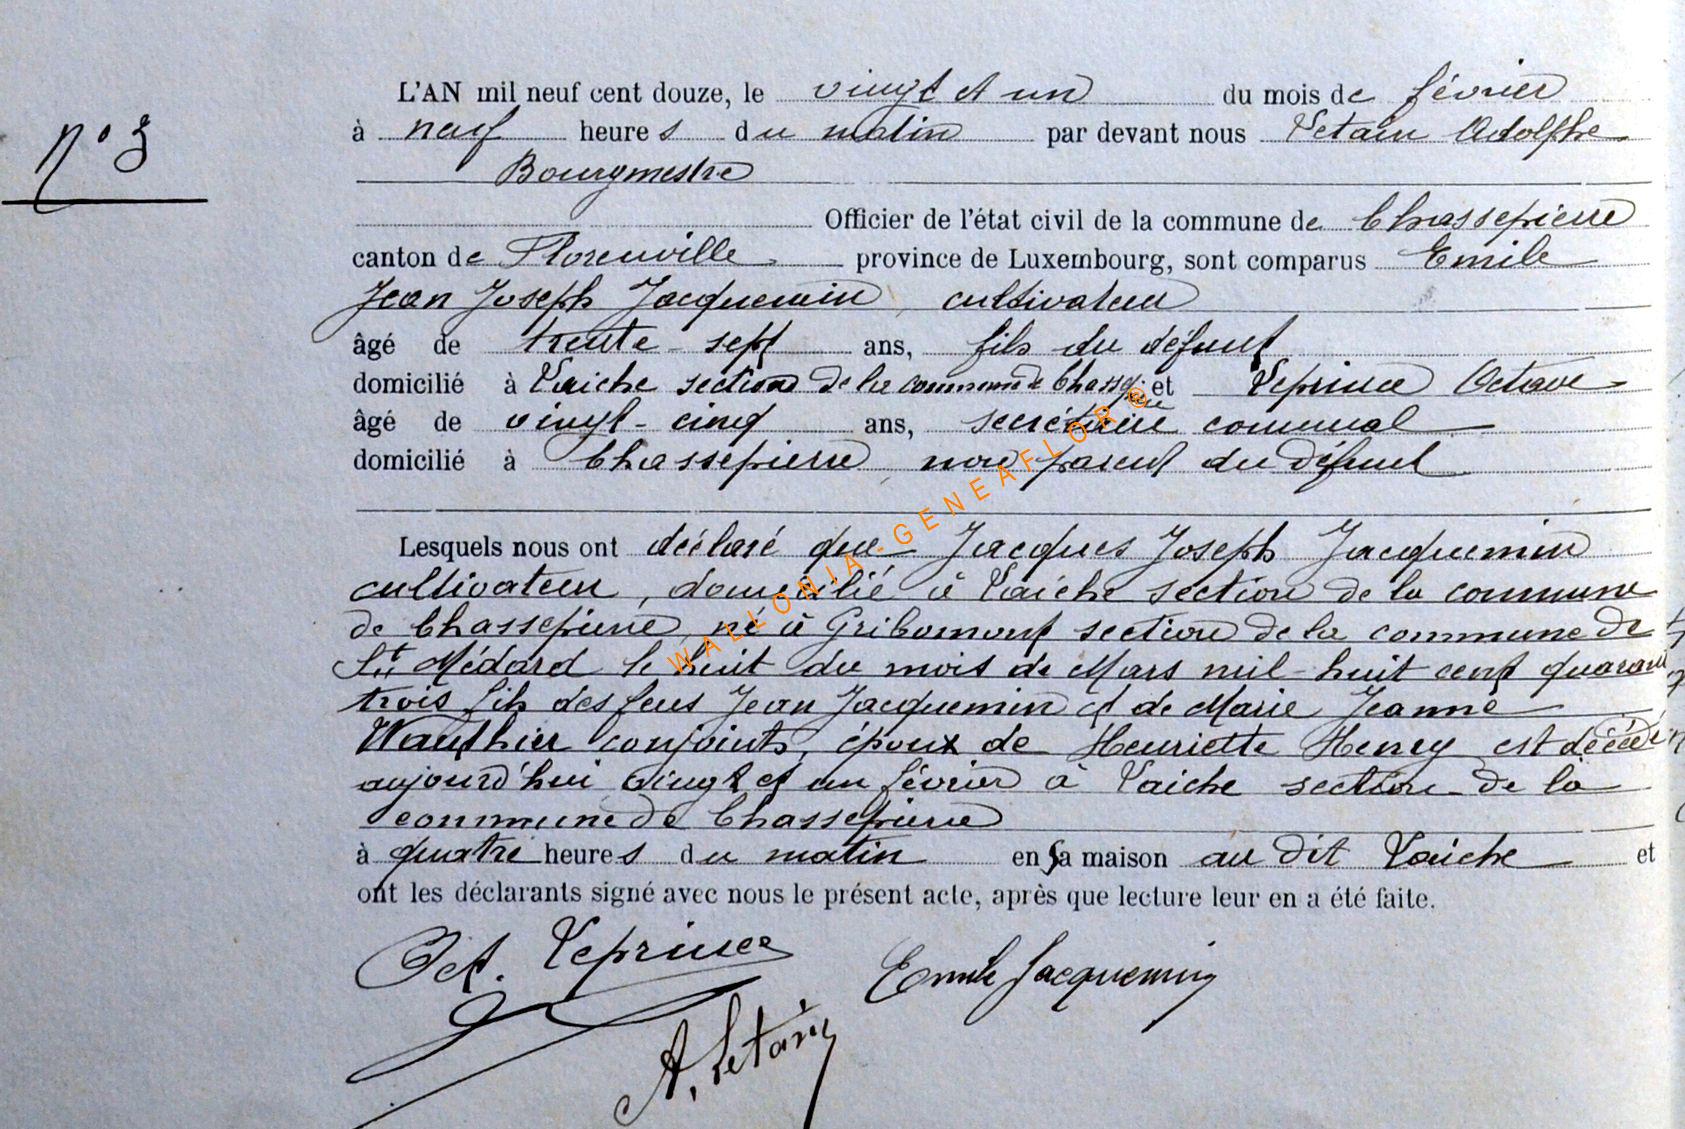 n° 3
L'AN mil neuf cent douze, le vingt et un du mois de février
à neuf heures du matin par devant nous Letain Adolphe
Bourgmestre
Officier de l'état civil de la commune de Chassepierre
canton de Florenville province de Luxembourg, sont comparus Emile
Jean Joseph Jacquemin, cultivateur
âgé de trente-sept ans, fils du défunt
domicilié à Laiche section de la commune de Chassepierre et Leprince Octave
âgé de vingt-cinq ans, secrétaire communal
domicilié à Chassepierre, non parent du défunt
Lesquels nous ont déclaré que Jacques Joseph Jacquemin
cultivateur, domicilié à Laiche section de la commune
de Chassepierre, né à Gribomont section de la commune de
St Médard le huit du mois de Mars mil-huit cent quarante
trois fils des feus Jean Jacquemin et de Marie Jeanne
Wauthier conjoints, époux de Henriette Henry est décédé
aujourd'hui vingt et un février à Laiche section de la
commune de Chassepierre
à quatre heures du matin en sa maison au dit Laiche et
ont les déclarants signé avec nous le présent acte, après que lecture leur en a été faite.
Oct. Leprince Emile Jacquemin
A. Letain
WALLONIA-GENEAFLOR ©